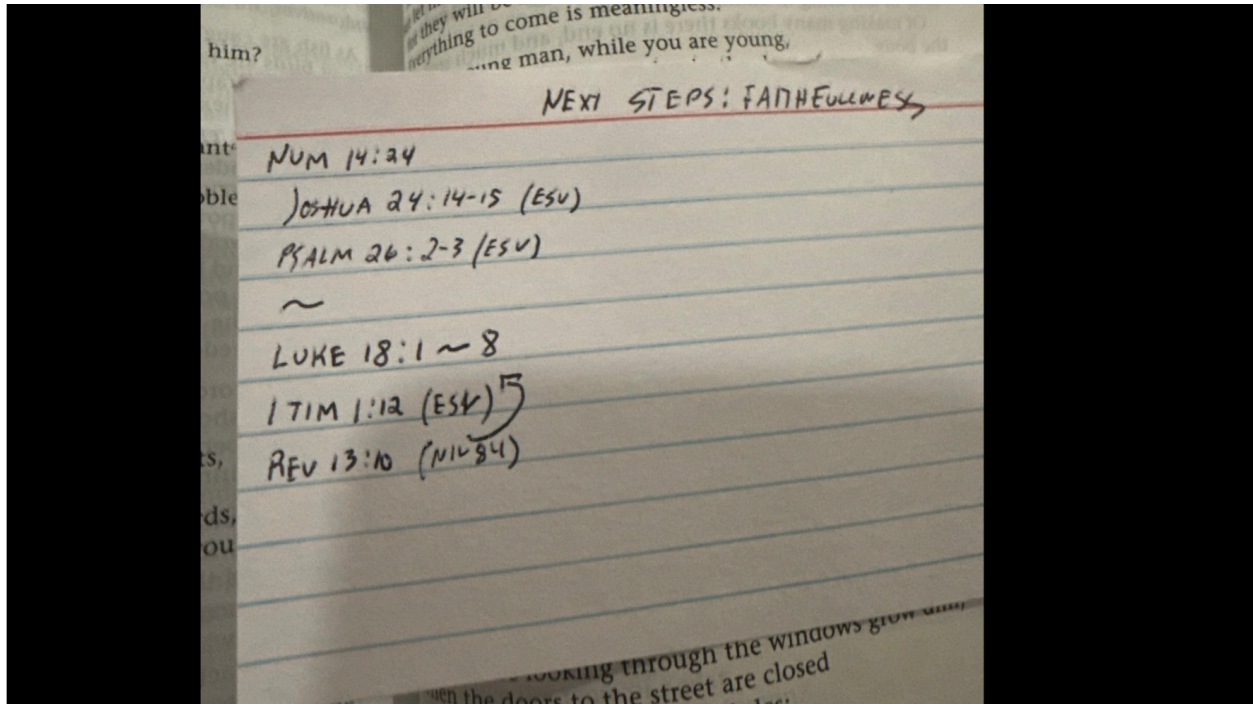 him?
they will
everything to come is meaningless.
young man, while you are young,
NEXT STEPS: FAITHFULLNESS
NUM 14:24
JOSHUA 24:14-15 (ESV)
PSALM 26:2-3 (ESV)
~
LUKE 18:1 ~ 8
1 TIM 1:12 (ESV)
REV 13:10 (NIV84)
looking through the windows grow dim;
the doors to the street are closed